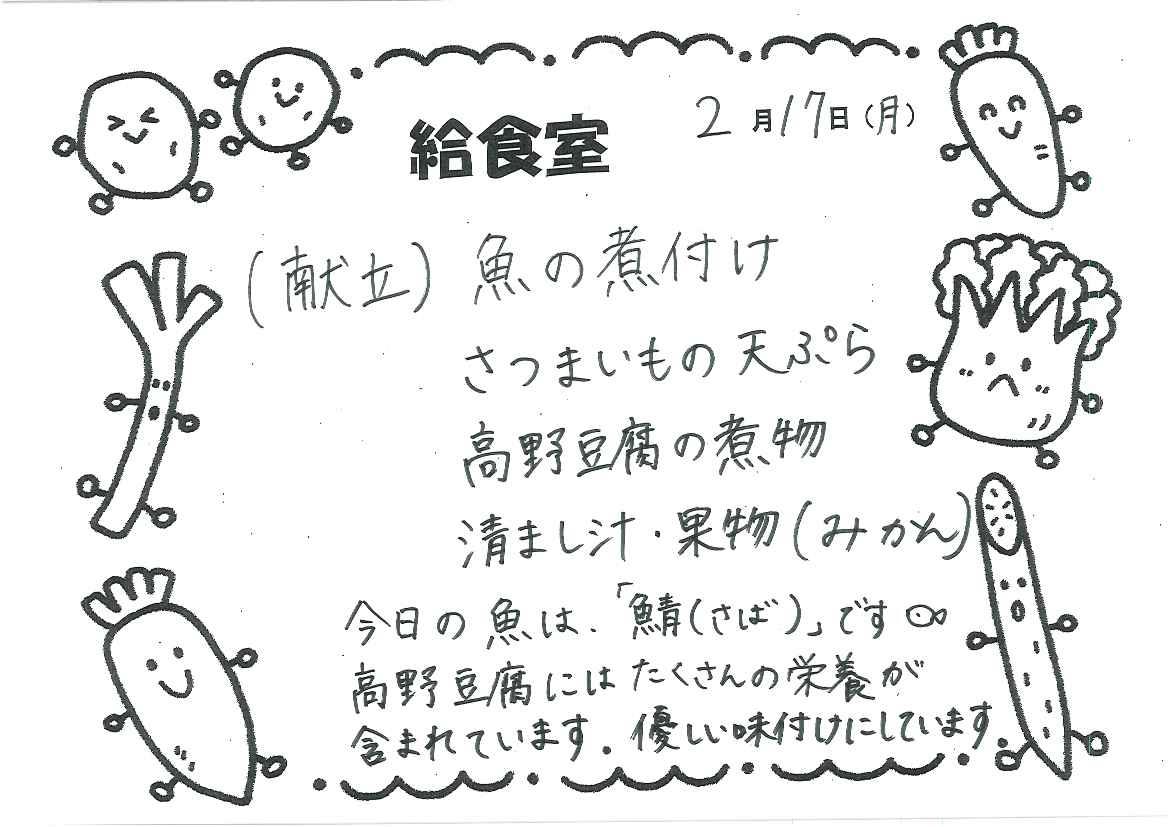 給食室
2月17日(月)
(献立) 魚の煮付け
さつまいもの天ぷら
高野豆腐の煮物
清まし汁・果物(みかん)
今日の魚は、「鯖(さば)」です
高野豆腐にはたくさんの栄養が
含まれています。優しい味付けにしています。